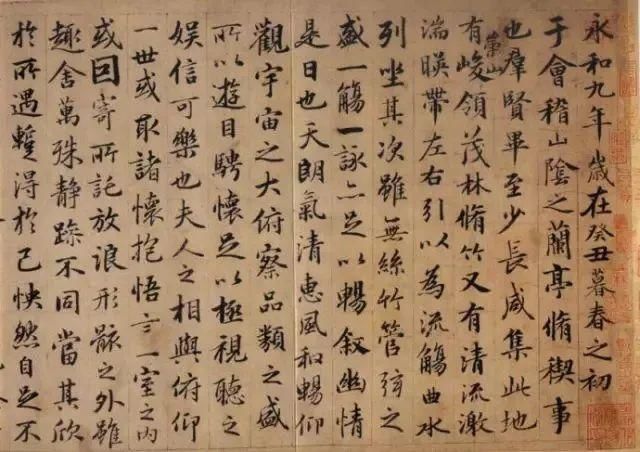 永和九年歲在癸丑暮春之初
于會稽山陰之蘭亭脩稧事
也羣賢畢至少長咸集此地
有崇山峻領茂林脩竹又有清流激
湍暎帶左右引以為流觴曲水
列坐其次雖無絲竹管弦之
盛一觴一詠亦足以暢叙幽情
是日也天朗氣清惠風和暢仰
觀宇宙之大俯察品類之盛
所以遊目騁懷足以極視聽之
娛信可樂也夫人之相與俯仰
一世或取諸懷抱悟言一室之內
或因寄所託放浪形骸之外雖
趣舍萬殊静躁不同當其欣
於所遇蹔得於己怏然自足不